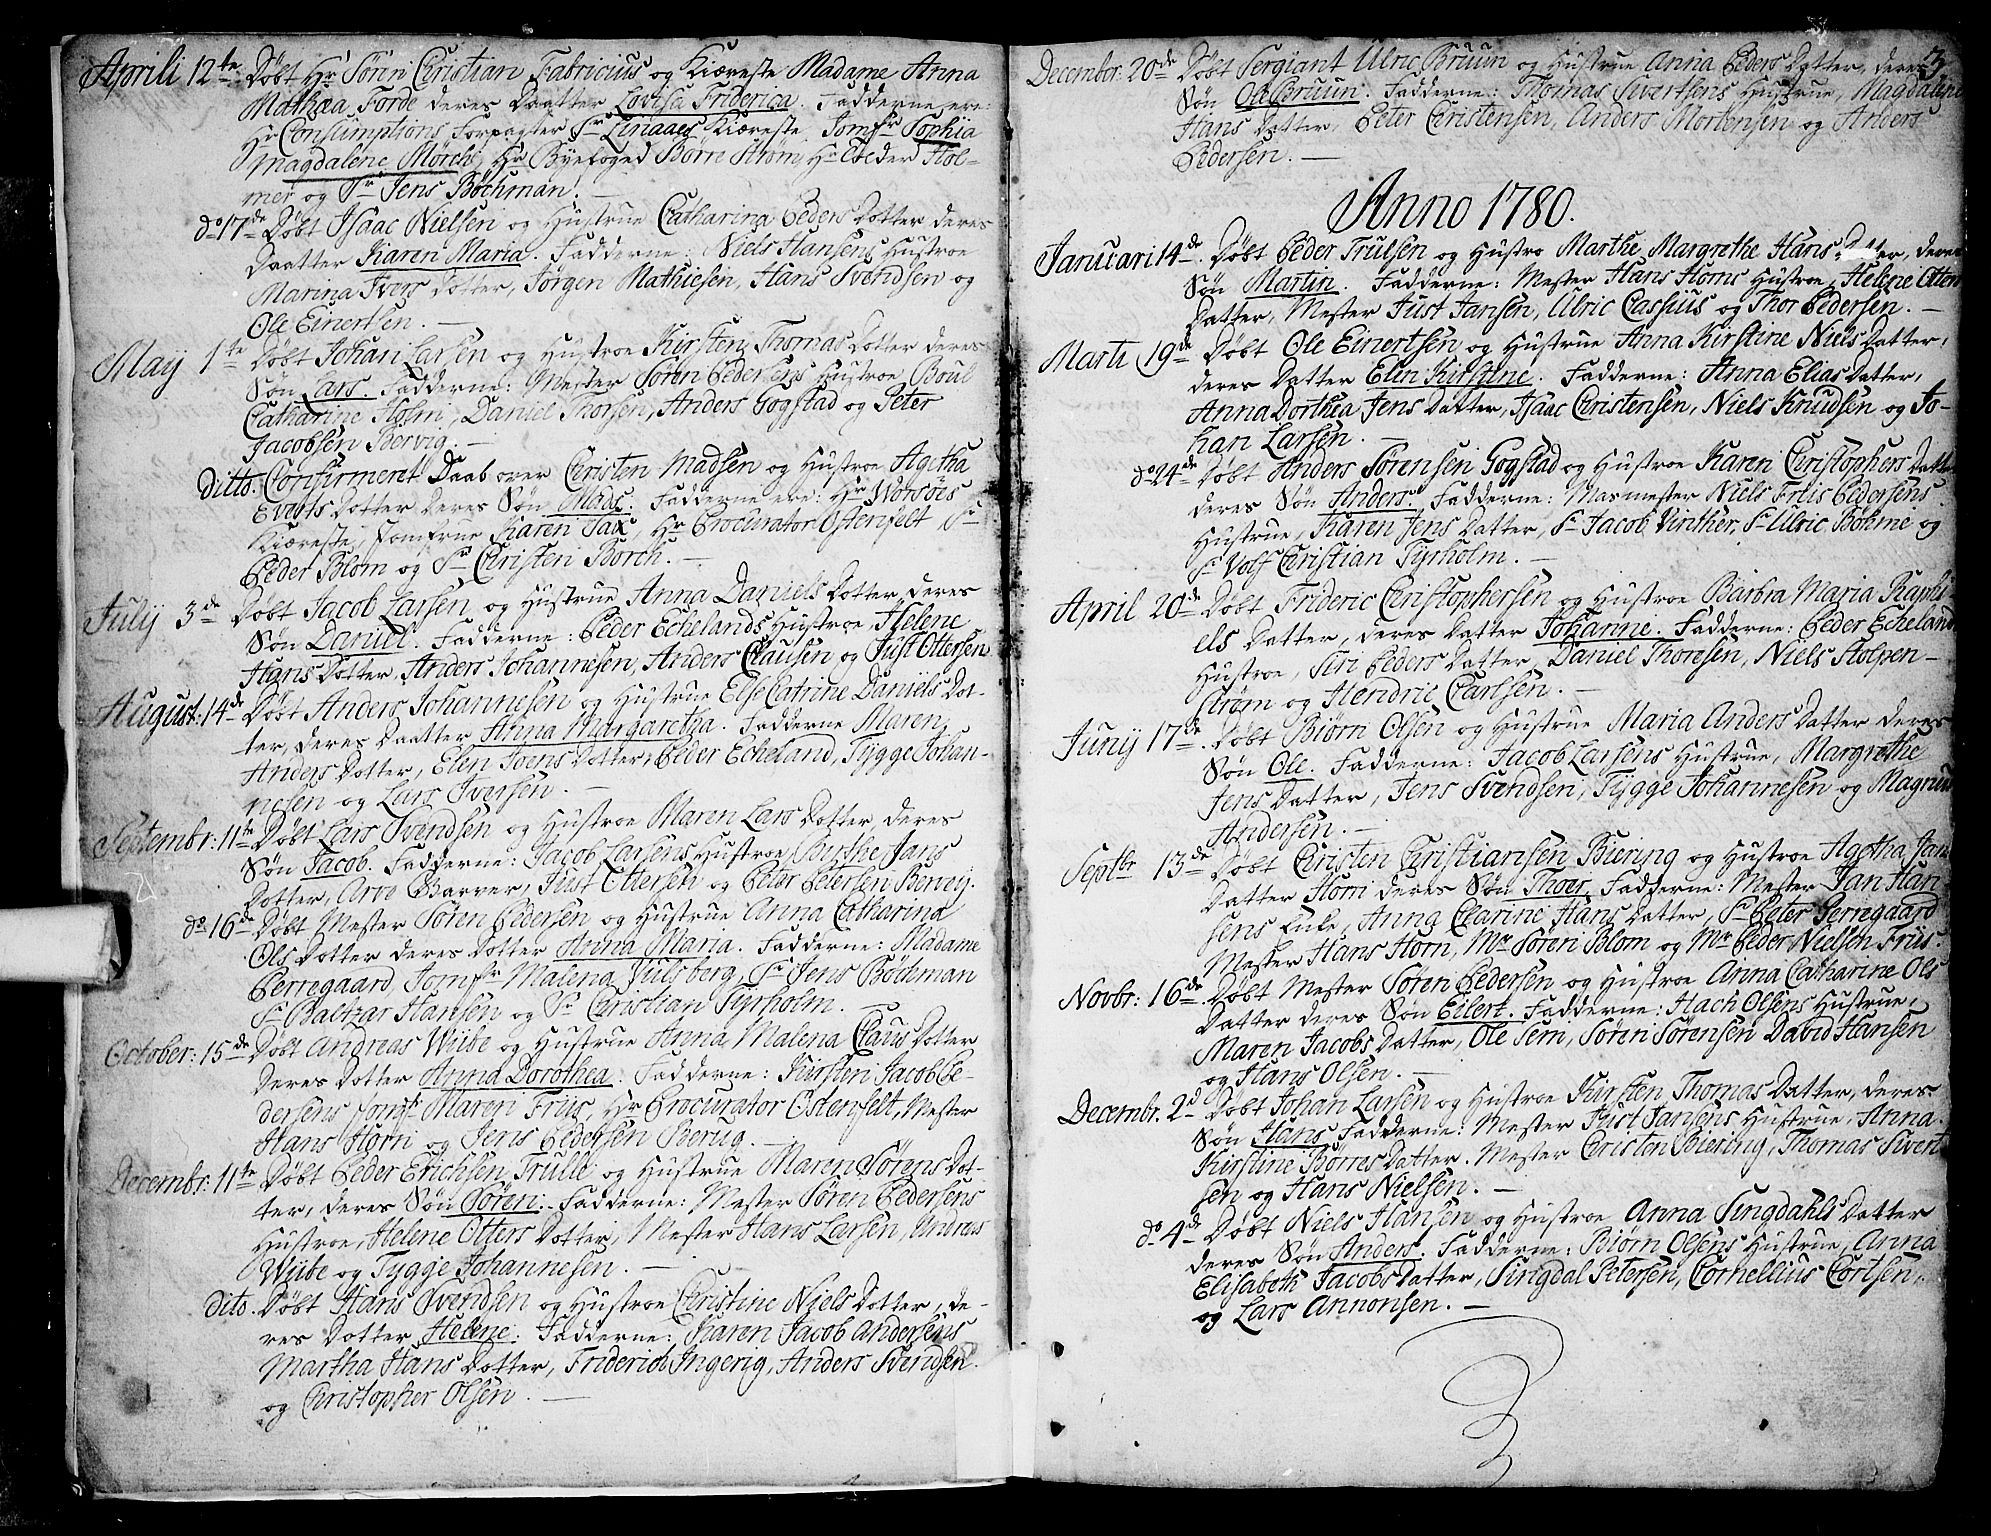 Aprili 12te Døbt Hr Søren Christian Fabricius og Kiæreste Madame Anna
Mathæa Forde deres Daatter Lovisa Friderica. Fadderne ere:
Hr Consumptions Forpagter Sr Linaaes Kiæreste, Jomfr Sophia
Magdalene Mørch, Hr Byefoged Børre Strøm, Hr Peder Hol-
mer og Sr Jens Bøchman.
do 17de Døbt Isaac Nielsen og Hustrue Catharina Peders Dotter deres
Daatter Karen Maria. Fadderne: Niels Hansens Hustroe
Marina Ivers Dotter, Jørgen Mathiesen, Hans Svendsen og
Ole Einertsen.
Maij 1te Døbt Johan Larsen og Hustroe Kirsten Thomas Dotter deres
Søn Lars. Fadderne: Mester Søren Pedersens Hustroe Boul
Catharine Holm, Daniel Thorsen, Anders Gogstad og Peter
Jacobsen
Ditto. Confirmeret Daab over Christen Madsen og Hustroe Agetha
Everts Dotter deres Søn Mads. Fadderne ere: Hr
Kiæreste, Jomfrue Karen Sax, Hr Procurator Ostenfelt, Sr
Peder Blom og Sr Christen Borch.
Julij 3de Døbt Jacob Larsen og Hustrue Anna Daniels Dotter, deres
Søn Daniel. Fadderne: Peder Echelands Hustroe, Helene
Hans Dotter, Anders Johannesen, Anders Clausen og Just Ottersen
August: 14de Døbt Anders Johannesen og Hustrue Else Catrine Daniels Dot-
ter, deres Daatter Anna Margaretha. Fadderne Maren
Anders Dotter, Elen Joens Dotter, Peder Echeland, Tygge Johan-
nesen og Lars Iversen.
Septembr: 11te Døbt Lars Svendsen og Hustroe Maren Lars Dotter deres
Søn Jacob. Fadderne: Jacob Larsens Hustroe, Birthe Jans
Dotter, Arve Garver, Just Ottersen og Peter Petersen
do 16de Døbt Mester Søren Pedersen og Hustrue Anna Catharina
Ols Dotter deres Dotter Anna Maria. Fadderne: Madame
Perregaard, Jomfr Malena Vulsberg, Sr Jens Bødeman
Sr Baltzar Hansen og Sr Christian Tyrholm.
October: 15de Døbt Andreas Wiibe og Hustrue Anna Malena Claus Dotter
deres Dotter Anna Dorothea. Fadderne: Kirsten Jacob Pe-
dersens Jomfr Maren Friis, Hr Procurator Ostenfelt, Mester
Hans Horn og Jens Pedersen
Decembr: 11te Døbt Peder Erichsen Trulle og Hustrue Maren Sørens Dot-
ter, deres Søn Søren. Fadderne: Mester Søren Pedersens
Hustroe, Helene Otters Dotter, Mester Hans Larsen, Andreas
Wiibe og Tygge Johannesen.
dito. Døbt Hans Svendsen og Hustroe Christine Niels Dotter, de-
res Dotter Helene. Fadderne: Karen Jacob Andersens
Martha Hans Dotter, Friderich Ingerig, Anders Svendsen
og Christopher Olsen.
3.
Decembr: 20de Døbt Sergiant Ulric Bruun og Hustrue Anna Peders Datter, deres
Søn Ole Bruun. Fadderne: Thomas Sivertsens Hustrue, Magdalene
Hans Datter, Peter Christensen, Anders Mortensen og Anders
Pedersen.
Anno 1780.
Januari 14de Døbt Peder Trulsen og Hustro Marthe Margrethe Hans Datter, deres
Søn Martin. Fadderne: Mester Hans Horns Hustroe, Helene Otters
Datter, Mester Just Jansen, Ulric Cassius og Thor Pedersen.
Marti 19de Døbt Ole Einertsen og Hustrue Anna Kirstine Niels Datter,
deres Datter Elen Kirstine. Fadderne: Anna Elias Datter,
Anna Dorthea Jens Datter, Isaac Christensen, Niels Knudsen og Jo-
han Larsen.
do 24de Døbt Anders Sørensen Gogstad og Hustroe Karen Christophers Datter
deres Søn Anders. Fadderne: Masmester Niels Friis Pedersens
Hustrue, Karen Jens Datter, Sr Jacob Vinther, Sr Ulric Bøhme og
Sr Volf Christian Tyrholm.
April 20de Døbt Frideric Christophersen og Hustroe Barbra Maria Raphi-
els Datter, deres Datter Johanne. Fadderne: Peder Echeland
Hustroe, Siri Peders Datter, Daniel Thoresen, Niels Stolpen-
strøm og Hendric Carlsen.
Junij 17de Døbt Biørn Olsen og Hustrue Maria Anders Datter deres
Søn Ole. Fadderne: Jacob Larsens Hustrue, Margrethe
Jens Datter, Jens Svendsen, Tygge Johannesen og Magnus
Andersen.
Septbr 13de Døbt Christen Christiansen Biering og Hustroe Agetha Jans
Datter Horn deres Søn Thoer. Fadderne: Mester Jan Han
sens Enke, Anna Clarine Hans Datter, Sr Peter Perregaard
Mester Hans Horn, Mr Søren Blom og Mr Peder Nielsen Friis.
Novbr: 16de Døbt Mester Søren Pedersen og Hustroe Anna Catharine Ols
Datter deres Søn Eilert. Fadderne: Hach Olsens Hustrue,
Maren Jacobs Datter, Ole Sem, Søren Sørensen David Hansen
og Hans Olsen.
Decembr. 2d Døbt Johan Larsen og Hustroe Kirsten Thomas Datter, deres
Søn Hans. Fadderne: Mester Just Jansens Hustrue, Anna
Kirstine Børres Datter. Mester Christen Biering, Thomas Sivert
sen og Hans Nielsen.
do 4de Døbt Niels Hansen og Hustroe Anna Singdahls Datter
deres Søn Anders. Fadderne: Biørn Olsens Hustrue, Anna
Elisabeth Jacobs Datter, Singdal Petersen, Cornelius Cortsen,
og Lars Annonsen.